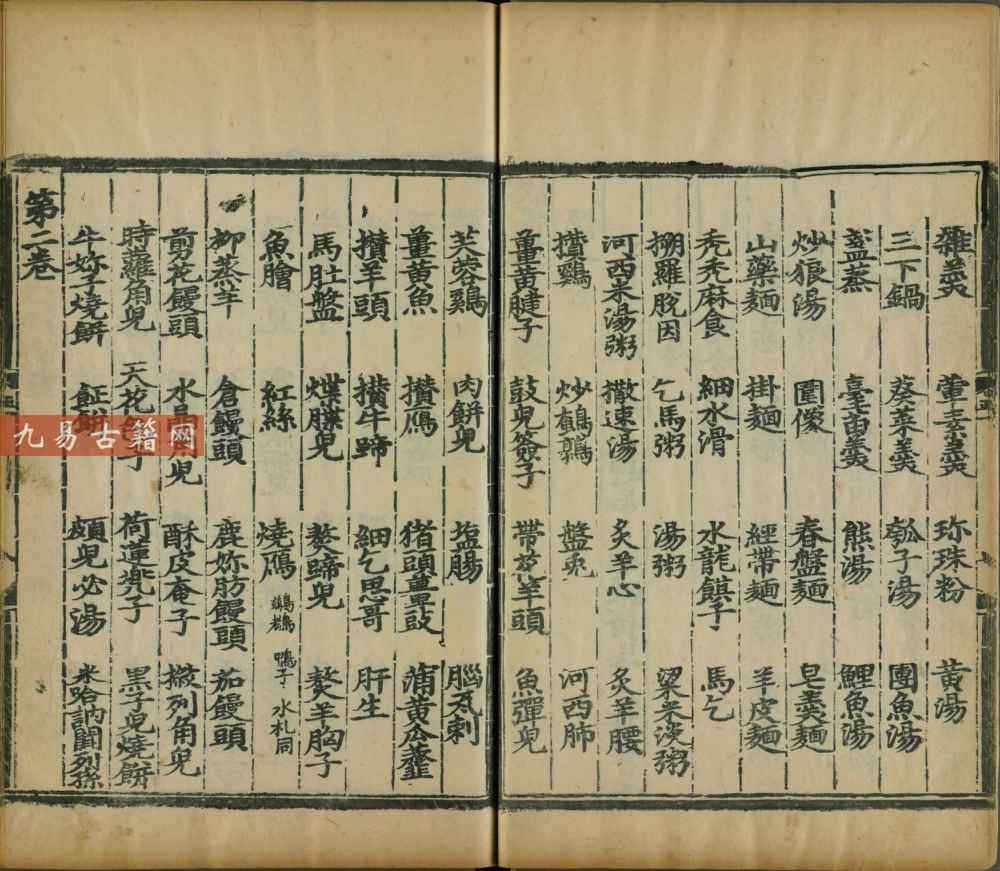 雜羹 葷素羹 珎珠粉 黄湯
三下鍋 葵菜羹 瓠子湯 團魚湯
盞蒸 臺苗羹 熊湯 鯉魚湯
炒狼湯 圍像 春盤麵 皂羹麵
山藥麵 掛麵 經帶麵 羊皮麵
禿禿麻食 細水滑 水龍䬣子 馬乞
搠羅脫因 乞馬粥 湯粥 粱米淡粥
河西米湯粥 撒速湯 炙羊心 炙羊腰
攢鷄 炒鵪鶉 盤兎 河西肺
薑黄腱子 鼓兒簽子 帶花羊頭 魚彈兒
芙蓉鷄 肉餅兒 塩腸 腦瓦剌
薑黄魚 攢鴈 猪頭薑豉 蒲黄瓜虀
攢羊頭 攢牛蹄 細乞思哥 肝生
馬肚盤 煠䐑兒 熬蹄兒 熬羊胸子
魚膾 紅絲 燒鴈 鴨子 水札同
柳蒸羊 倉饅頭 鹿妳肪饅頭 茄饅頭
剪花饅頭 水 兒 酥皮奄子 撇列角兒
時蘿角兒 天花 子 荷蓮兠子 黒子兒燒餅
牛妳子燒餅 䬳餅 頗兒必湯 米哈訥關列孫
第二卷
九易古籍网